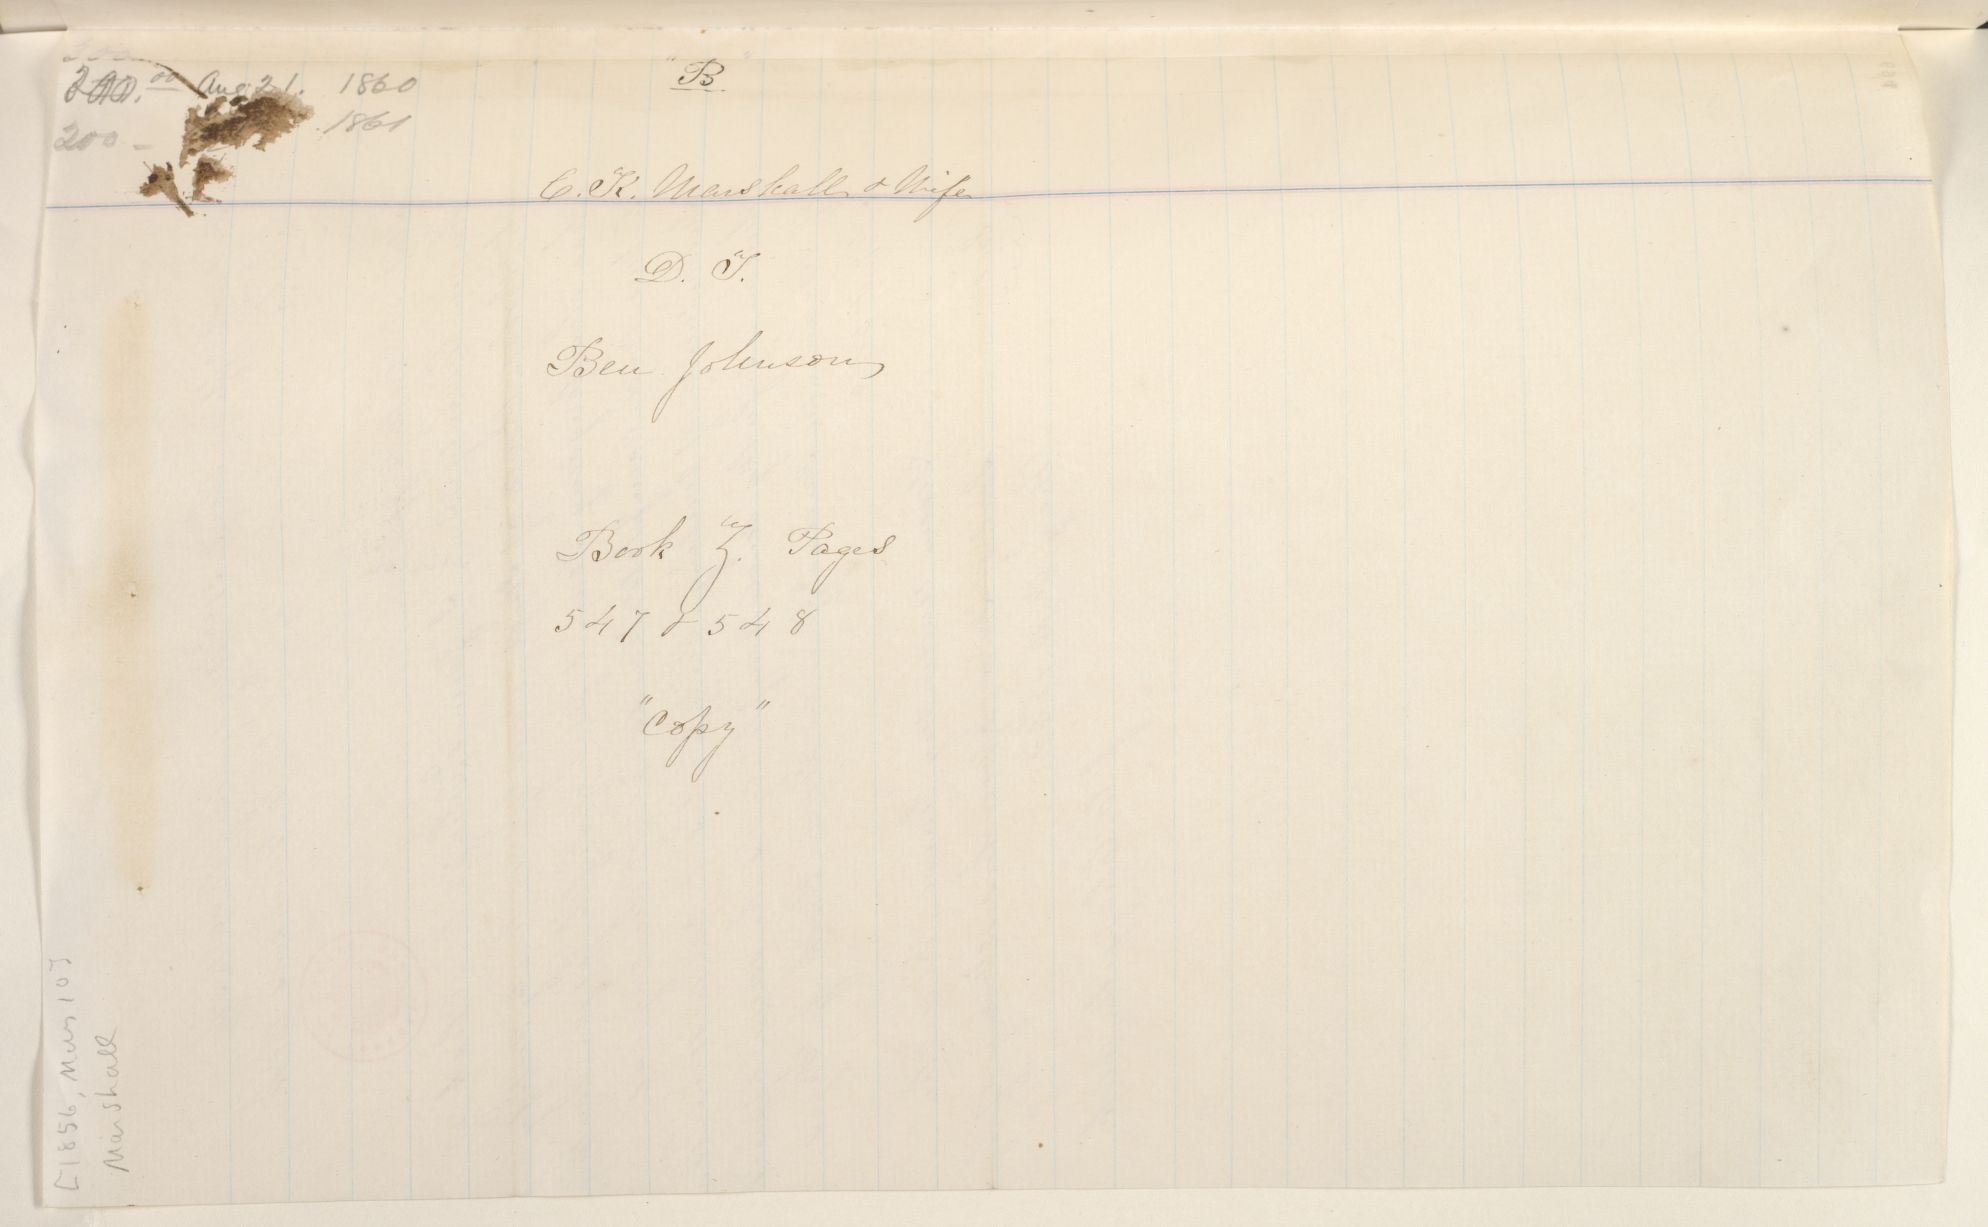 300
200.00 Aug 21. 1860
200 - 1861
"B"
C. K. Marshall & Wife
D. T.
Ben Johnson
Book Z. Pages
547 & 548
"Copy"
[1856, Mar 10]
Marshall